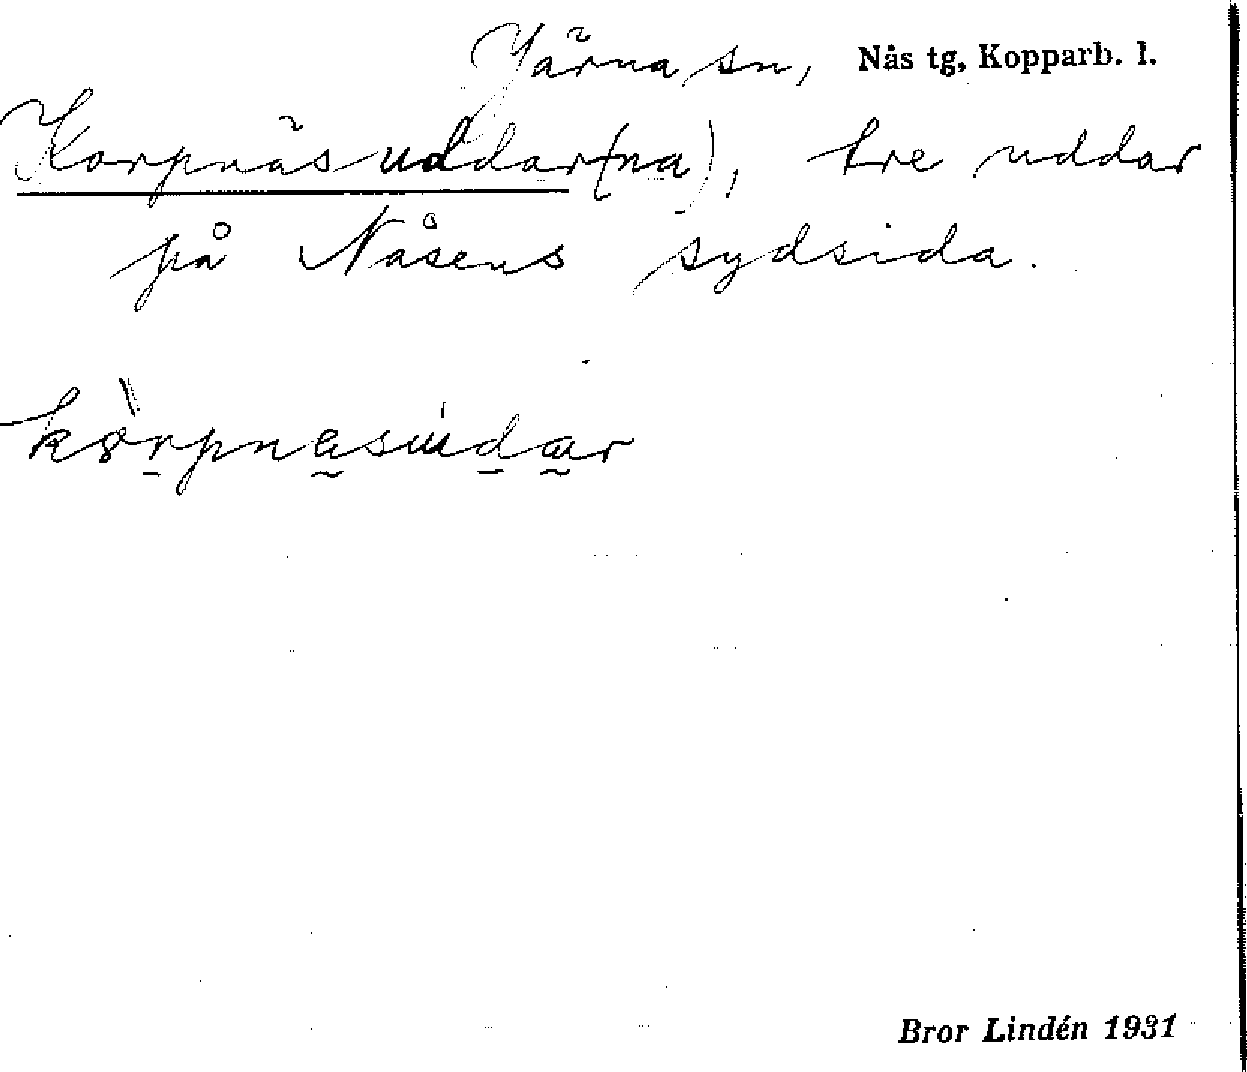 Järna sn, Nås tg, Kopparb. l.
Korpnäsuddar(na), tre uddar
på Nåsens sydsida.
Bror Lindén 1931